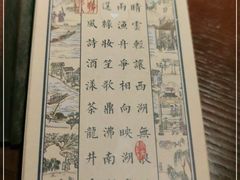 晴雲輕讓西湖無
雨漁舟爭相向映湖
妝笙歌鼎沸南
風詩酒漾茶龍井